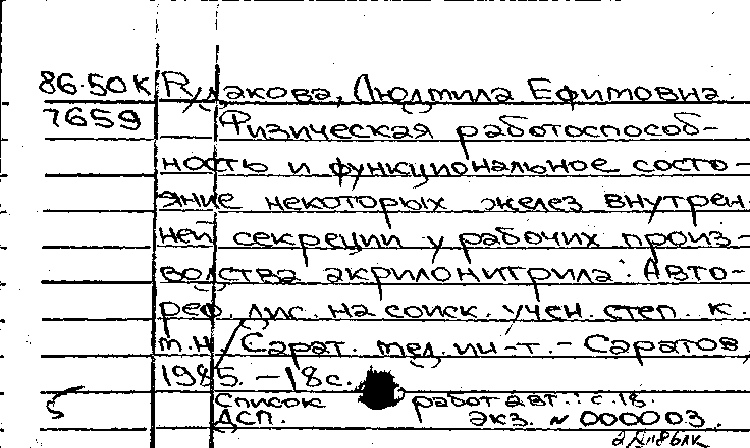 86-50К Рудакова, Людмила Ефимовна.
7659 Физическая работоспособ-
ность и функциональное состо-
яние некоторых желез внутрен
ней секреции у рабочих произ-
водства акрилонитрила: Авто-
реф. дис. на соиск. учен. степ. к.
м.н / Сарат. мед. ин-т. - Саратов,
1985. - 18 с.
Список работ авт.: с. 18.
5 ДСП. экз. № 000003.